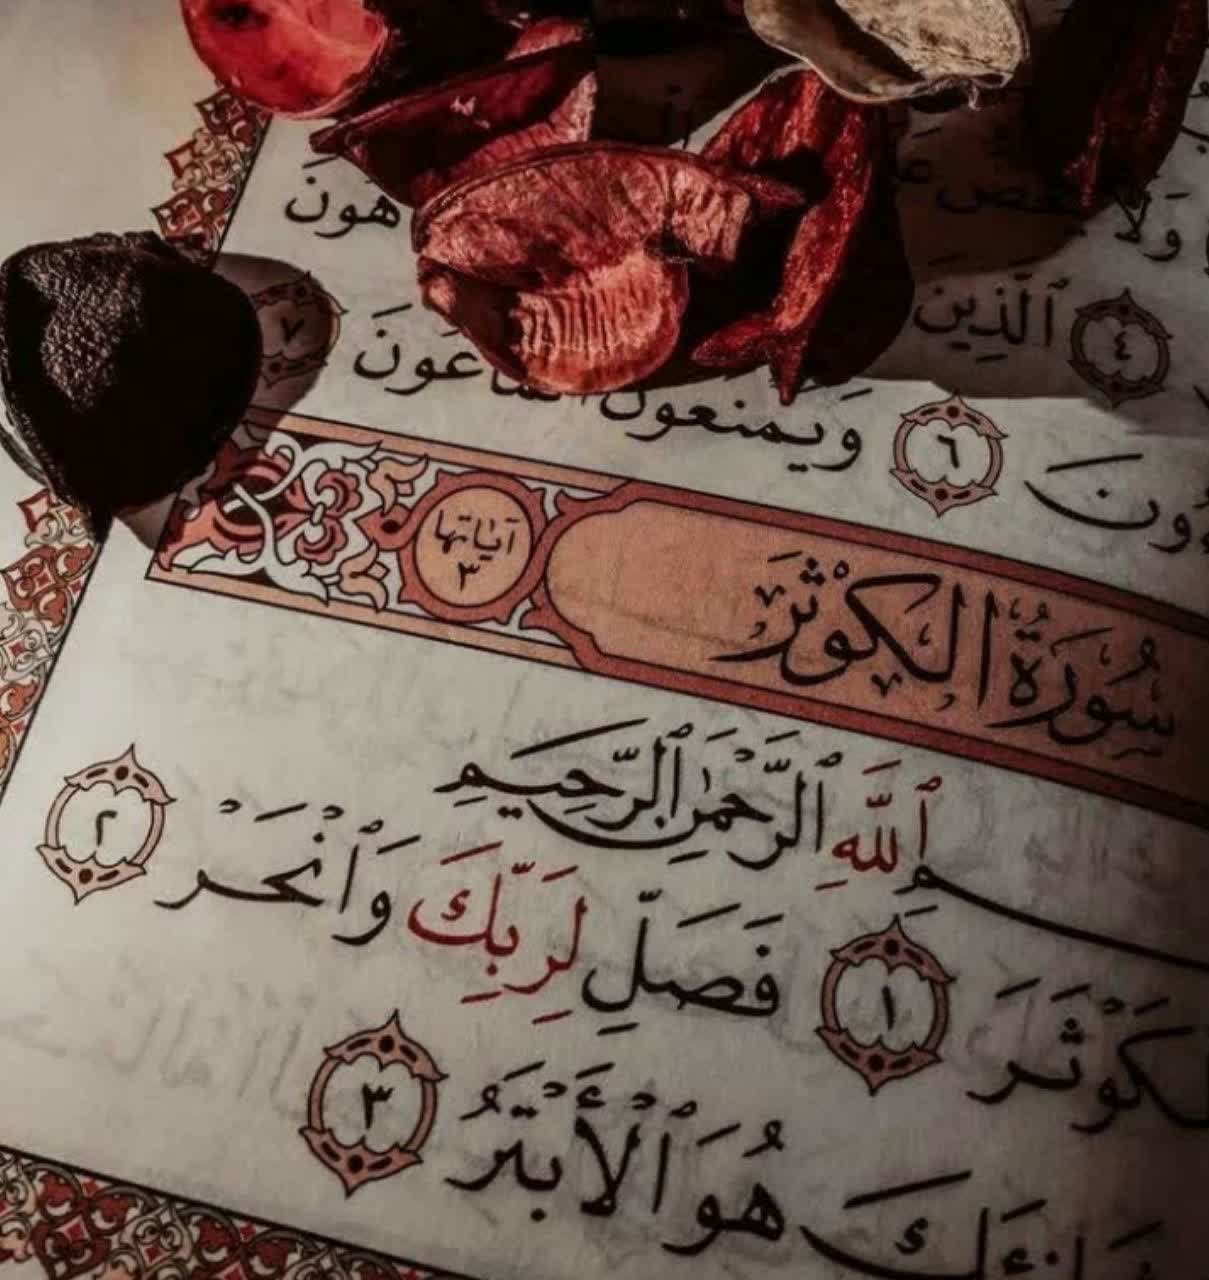 هُونَ
ٱلَّذِينَ ٤
وَيَمْنَعُونَ ٱلْمَاعُونَ ٧
ونَ ٦
سُورَةُ الكَوْثَرَ
آيَاتُهَا ٣
ٱللَّهِ ٱلرَّحْمَٰنِ ٱلرَّحِيمِ
كَوْثَرَ ١ فَصَلِّ لِرَبِّكَ وَٱنْحَرْ ٢
هُوَ ٱلْأَبْتَرُ ٣